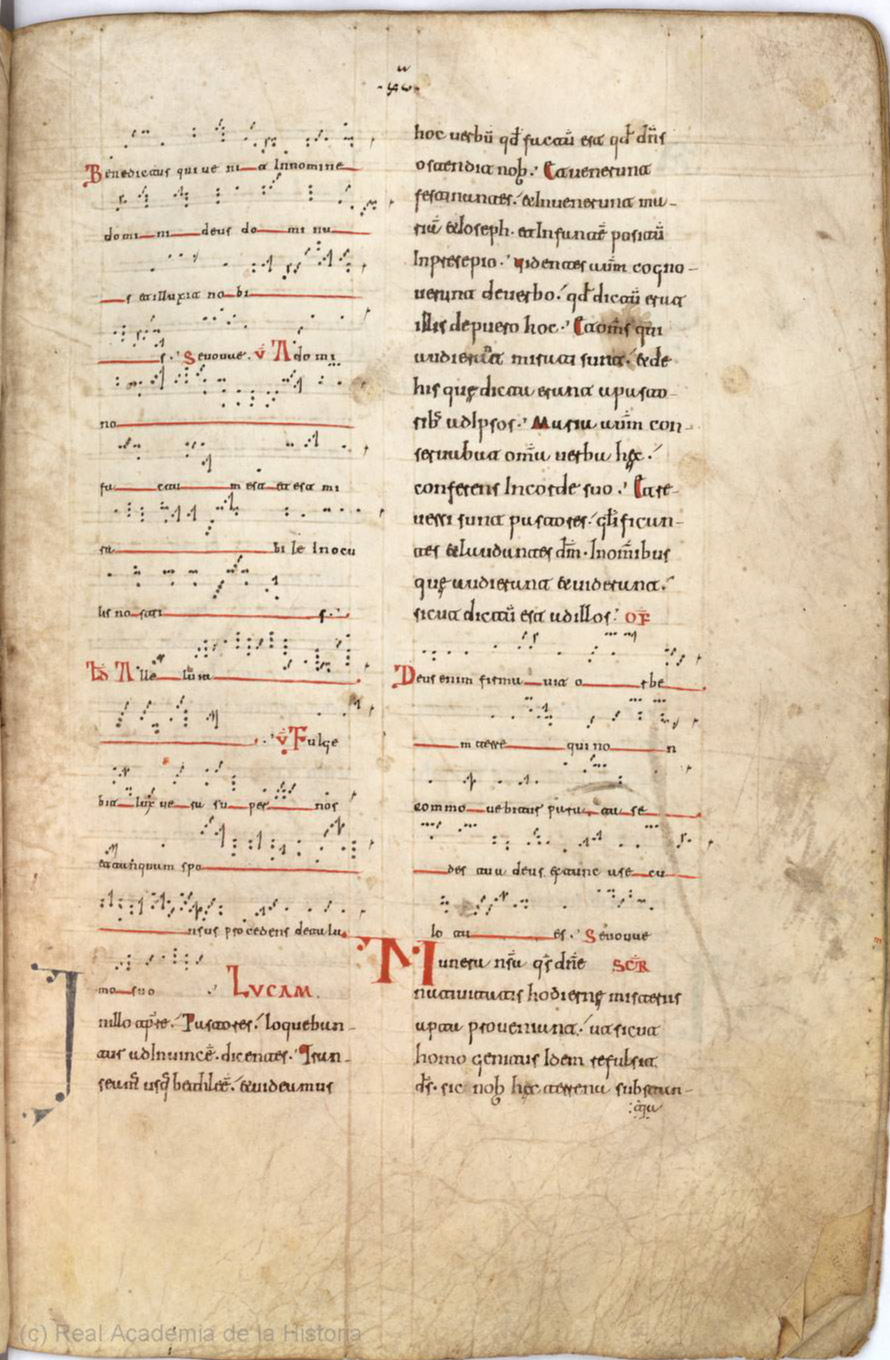 Benedictus qui ue ni a In nomine
domi ni deus do mi nu
s et illuxit no bi
s. Seuouae. V A domi
no
fa ctu m est et est mi
ra bi le in ocu
lis no stri s.
All Alle luia
V Fulge
bit lux ue ra su per nos
spo
nsus procedens de tala
mo suo LVCAM.
In illo apre. Pastores. loquebun-
tur ad inuince. dicentes. Tran-
seam usq bethlee. et uideamus
hoc uerbu qd factu est qd dns
ostendit nob. Et uenerunt
festinantes. et inuenerunt ma-
ria et Ioseph. et Infante positu
In presepio. uidentes aum cogno-
uerunt de uerbo. qd dictu erat
illis de puero hoc. Et oms qui
audierat mirati sunt. et de
his que dicta erunt a pasto
rib ad ipsos. Maria aum con-
seruabat omia uerba hec.
conferens In corde suo. Et re-
uersi sunt pastores. glifican-
tes et laudantes dm. In omibus
que audierunt et uiderunt.
sicut dictu est ad illos. OF
Deus enim firma uit o rbe
m terre qui no n
commo uebitur parata se
des tua deus ex tunc a se cu
lo tu es. Seuouae
Munera nra qs dne SCR
natiuitatis hodierne misteriis
apta proueniant. ut sicut
homo genitus Idem refulsit
ds. sic nob hec terrena substan-
tia
(c) Real Academia de la Historia